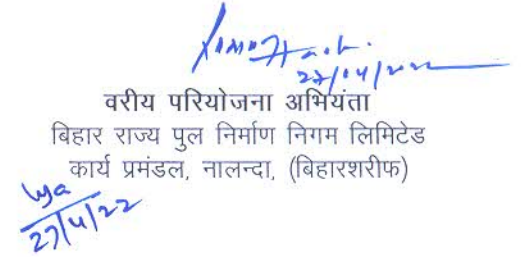 27/04/2022
वरीय परियोजना अभियंता
बिहार राज्य पुल निर्माण निगम लिमिटेड
कार्य प्रमंडल, नालन्दा, (बिहारशरीफ)
27/4/22